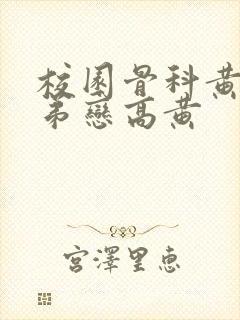 校園骨科黃
弟戀高黃
宮澤里惠